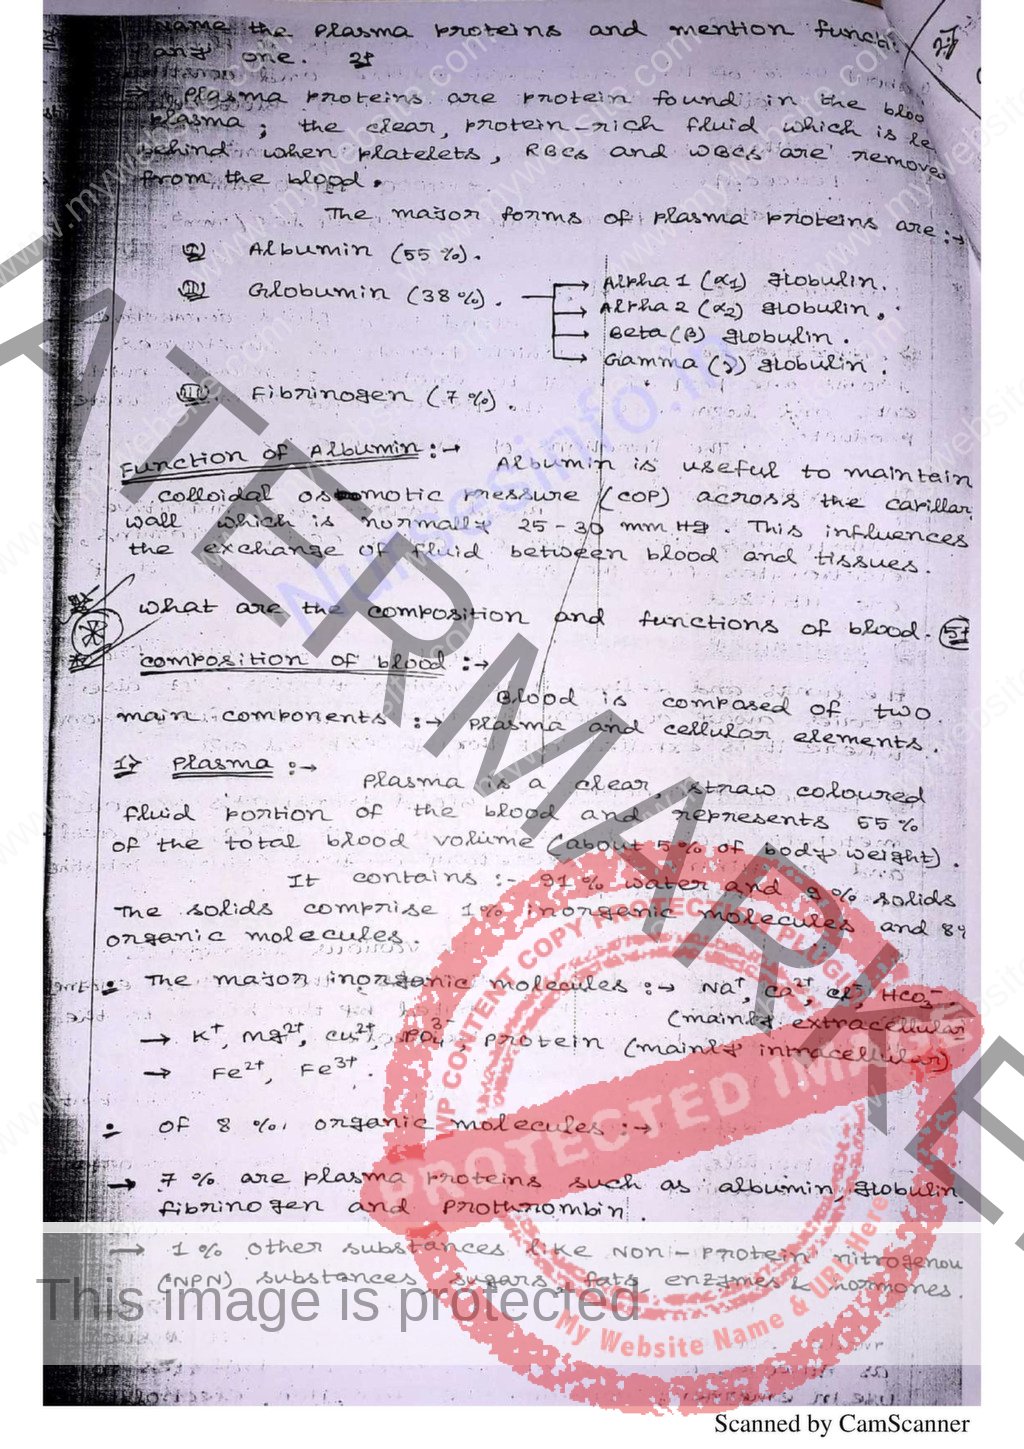 Name the plasma proteins and mention functi
any one. 2+
→ Plasma proteins are protein found in the bloo
plasma; the clear, protein-rich fluid which is le
behind when platelets, RBCs and WBCs are remove
from the blood.
The major forms of plasma proteins are:→
(I) Albumin (55%).
(II) Globumin (38%).
Alpha 1 (α1) globulin.
Alpha 2 (α2) globulin.
Beta (β) globulin.
Gamma (γ) globulin.
(III) Fibrinogen (7%).
Function of Albumin:→ Albumin is useful to maintain
colloidal osmotic pressure (COP) across the capillar
wall which is normally 25-30 mm Hg. This influences
the exchange of fluid between blood and tissues.
What are the composition and functions of blood. 5+
composition of blood:→
Blood is composed of two
main components:→ plasma and cellular elements.
1> Plasma:→
Plasma is a clear, straw coloured
fluid portion of the blood and represents 55%
of the total blood volume (about 5% of body weight).
It contains:- 91% water and 9% solids
The solids comprise 1% inorganic molecules and 8%
organic molecules.
The major inorganic molecules:→ Na⁺, Ca²⁺, Cl⁻, HCO₃⁻
(mainly extracellular
→ K⁺, Mg²⁺, Cu²⁺, PO₄³⁻, protein (mainly intracellular)
→ Fe²⁺, Fe³⁺.
Of 8% organic molecules:→
→ 7% are plasma proteins such as albumin, globulin
fibrinogen and prothrombin.
→ 1% other substances like Non-protein nitrogenou
(NPN) substances, sugars, fats, enzymes & hormones.
This image is protected
WATERMARKED
Nursesinfo.in
www.mywebsite.com
WP CONTENT COPY PROTECTION PLUGIN
PROTECTED IMAGE
My Website Name & Url Here
Scanned by CamScanner